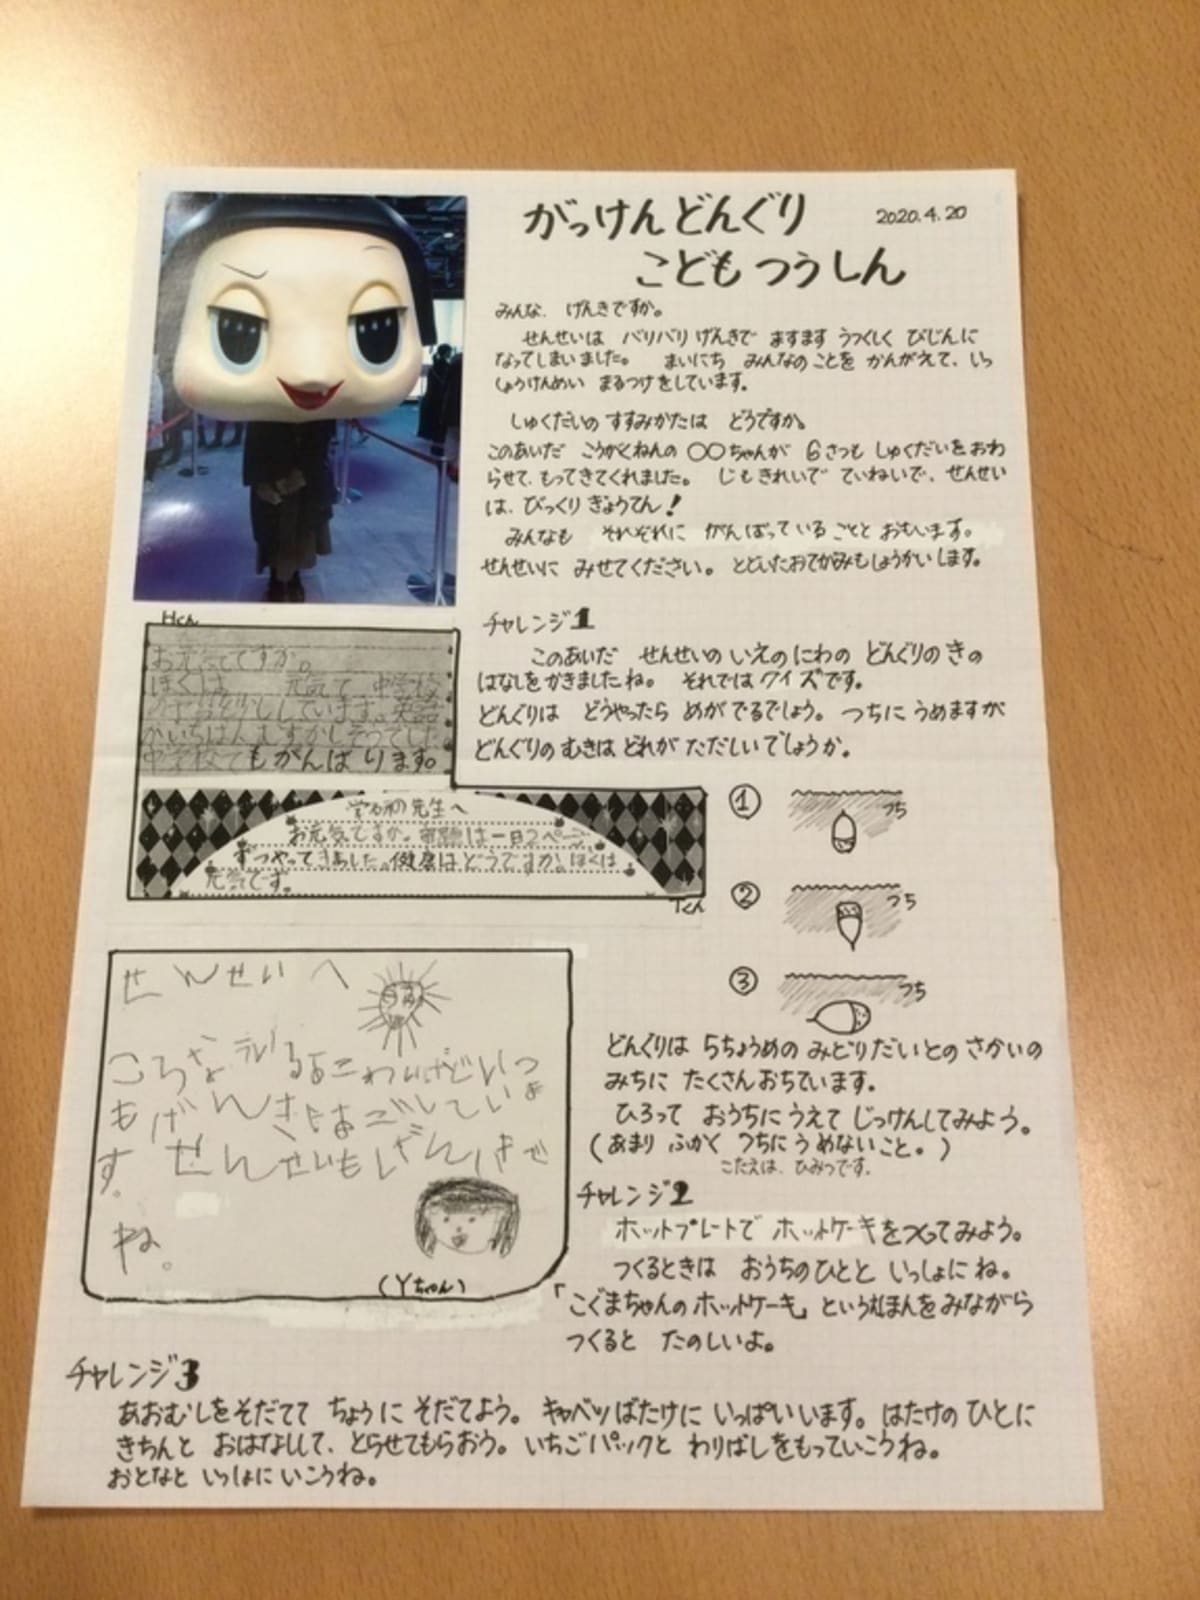 がっけんどんぐり
こどもつうしん
2020.4.20
みんな、げんきですか。
せんせいは バリバリげんきで ますます うつくしく びじんに
なってしまいました。 まいにち みんなのことを かんがえて、いっ
しょうけんめい まるつけをしています。
しゅくだいの すすみかたは どうですか。
このあいだ こうがくねんの 〇〇ちゃんが 6さつも しゅくだいをおわ
らせて、もってきてくれました。 じもきれいで ていねいで、せんせい
は、びっくりぎょうてん!
みんなも それぞれに がんばっていることと おもいます。
せんせいに みせてください。 とどいたおてがみもしょうかいします。
Hくん
お元気ですか。
ぼくは 元気で、中学校
中学校でもがんばります。
学研の先生へ
お元気ですか。宿題は一日2ページ
ずつやってきました。健康はどうですか。ぼくは
元気です。
Tくん
せんせいへ
ころな
もげんきに
す。せんせいもげんきで
ね。
(Yちゃん)
チャレンジ1
このあいだ せんせいの いえのにわの どんぐりのきの
はなしをかきましたね。 それではクイズです。
どんぐりは どうやったら めがでるでしょう。 つちにうめますが
どんぐりのむきはどれが ただしいでしょうか。
① つち
② つち
③ つち
どんぐりは 5ちょうめの みどりだいとのさかいの
みちに たくさんおちています。
ひろって おうちにうえて じっけんしてみよう。
(あまり ふかく つちにうめないこと。)
こたえは、ひみつです。
チャレンジ2
ホットプレートで ホットケーキをつくってみよう。
つくるときは おうちのひとと いっしょにね。
「こぐまちゃんのホットケーキ」というえほんをみながら
つくると たのしいよ。
チャレンジ3
あおむしをそだてて ちょうに そだてよう。 キャベツばたけに いっぱいいます。はたけのひとに
きちんと おはなしして、とらせてもらおう。いちごパックと わりばしをもっていこうね。
おとなと いっしょに いこうね。